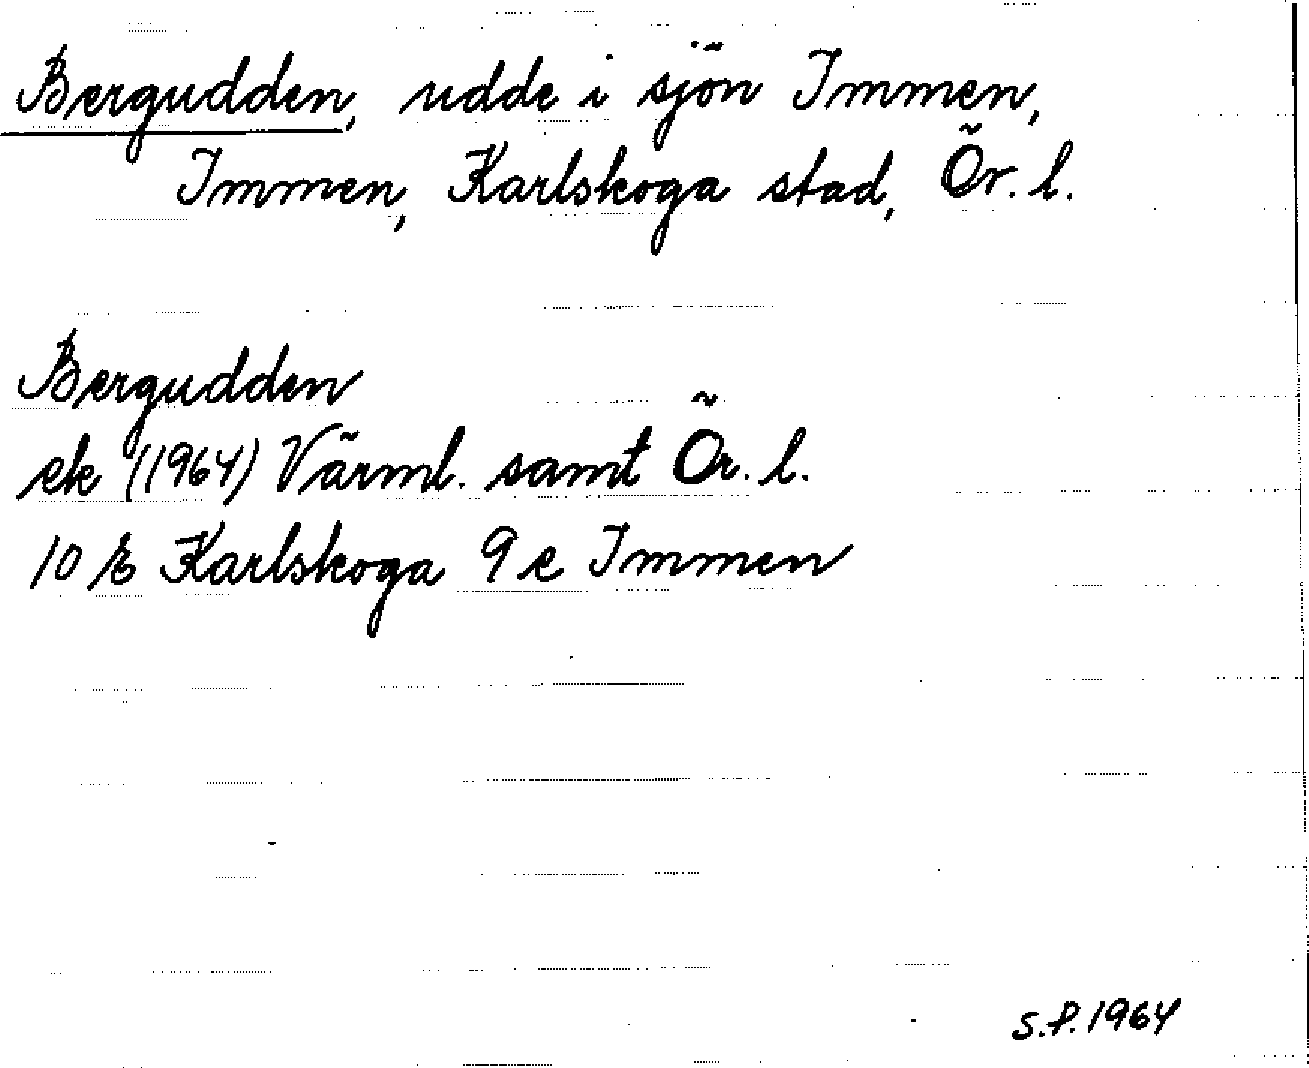 Bergudden, udde i sjön Immen,
Immen, Karlskoga stad, Ör. l.
Bergudden
ek (1964) Värml. samt Ör. l.
10 E Karlskoga 9 e Immen
S.P. 1964